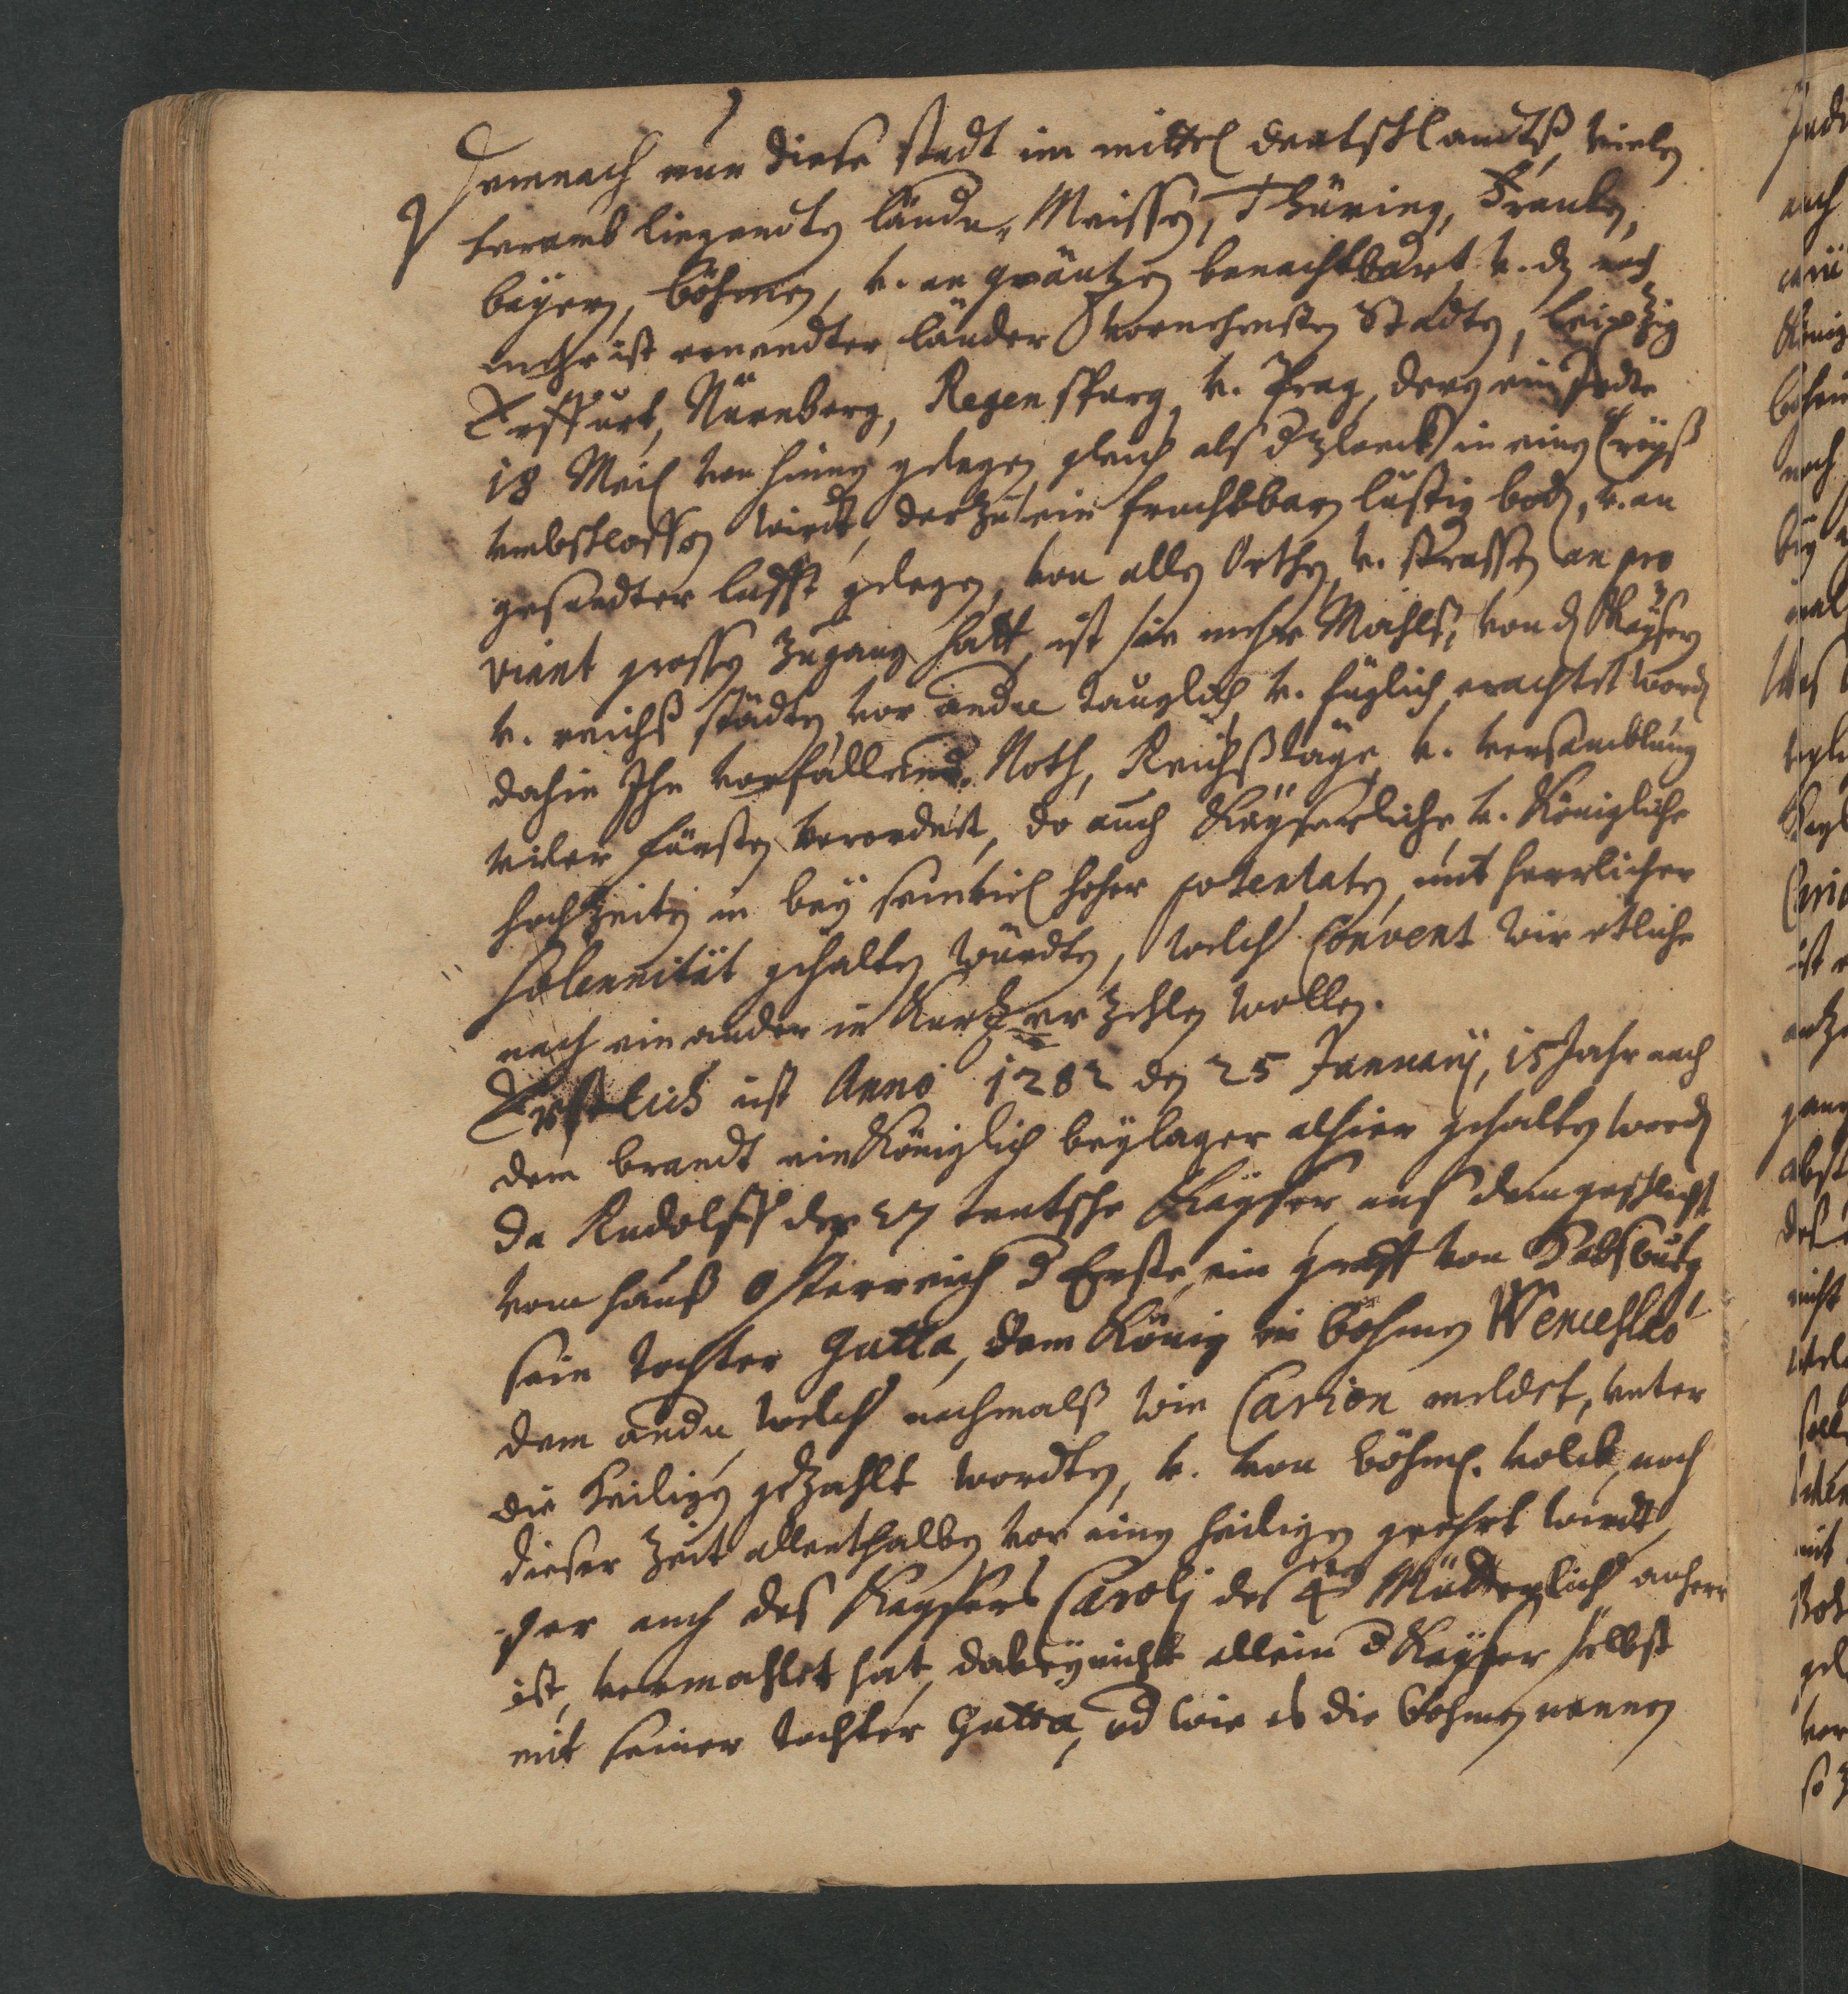 Demnach nun diese stadt im mittel deutschlandtß vielen
herumb liegendten ländn, Meissen, Thüring, Francken,
beyern, böhmen, v. an gräntzen benachtbart v. dz noch
mehr ist benandter länder vornehmsten Städten, Leipzig
Erffurt, Nürnberg, Regenspurg v. Prag, deren ein jedte
18 Meil von hinnen gelegen gleich als d in einen Creyß
umbschlossen wirdt, darzu ein fruchtbarn lustig bod, v. an
gesundter lufft gelegen, von allen Orthen v. strassen an pro
viant grossen zugang hatt, ist sie mehr Mahls, von d Keysern
v. reichß städten vor andn tauglich v. füglich erachtet word
dahin Ihn vorfallend. Noth, Reichßtäge v. versamblung
vieler fürsten verordnet, do auch Käyserliche v. Königliche
hochzeiten in bey sein viel hoher potentaten mit herrlicher
solennität gehalten würdten, welch Convent wir etliche
nach einander in Kurtz erzehlen wollen.
Erstlich ist Anno 1282 den 25 Januarij, 15 Jahr nach
dem brandt ein Königlich beylager alhier gehalten word
da Rudolff der 27 teutsche Käyser auß dem geschlecht
vom hauß Osterreich d Erste ein graff von Habsburg
sein tochter Gutta, dem König in böhmen Wenceslao
dem andn, welch nachmalß wie Carion meldet, unter
die heiligen gezahlt wordten, v. von böhm. volck noch
dieser Zeit allenthalben vor einen heiligen geehrt wirdt,
der auch des Kaysers Carolj des 4ten Mütterlich anherr
ist, vermahlet hat, dabey nicht allein d Kayser selbst
mit seiner tochter Gutta, od wie es die böhmen nennen